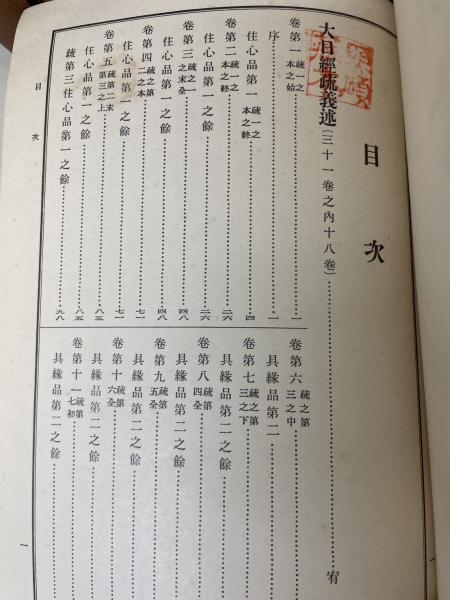 目次
大日經疏義述（三十一卷之內十八卷）……宥
卷第一 疏一之本之始……一
序……一
住心品第一 疏一之本之終……四
卷第二 疏一之本之終……二六
住心品第一之餘……二六
卷第三 疏之一之末全……四八
住心品第一之餘……四八
卷第四 疏之第二之本……七一
住心品第一之餘……七一
卷第五 疏第二末第三之上……八五
住心品第一之餘……八五
疏第三住心品第一之餘……九八
卷第六 疏之第三之中
具緣品第二
卷第七 疏之第三之下
具緣品第二之餘
卷第八 疏第四全
具緣品第二之餘
卷第九 疏第五全
具緣品第二之餘
卷第十 疏第六全
具緣品第二之餘
卷第十一 疏第七初
具緣品第二之餘
目次
一